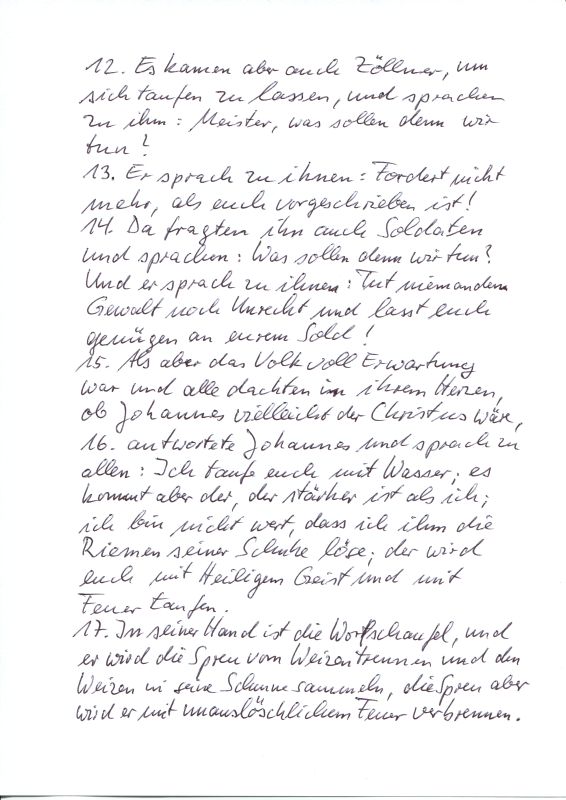 12. Es kamen aber auch Zöllner, um
sich taufen zu lassen, und sprachen
zu ihm: Meister, was sollen denn wir
tun?
13. Er sprach zu ihnen: Fordert nicht
mehr, als euch vorgeschrieben ist!
14. Da fragten ihn auch Soldaten
und sprachen: Was sollen denn wir tun?
Und er sprach zu ihnen: Tut niemandem
Gewalt noch Unrecht und lasst euch
genügen an eurem Sold!
15. Als aber das Volk voll Erwartung
war und alle dachten in ihrem Herzen,
ob Johannes vielleicht der Christus wäre,
16. antwortete Johannes und sprach zu
allen: Ich taufe euch mit Wasser; es
kommt aber der, der stärker ist als ich;
ich bin nicht wert, dass ich ihm die
Riemen seiner Schuhe löse; der wird
euch mit Heiligem Geist und mit
Feuer taufen.
17. In seiner Hand ist die Worfschaufel, und
er wird die Spreu vom Weizen trennen und den
Weizen in seine Scheune sammeln, die Spreu aber
wird er mit unauslöschlichem Feuer verbrennen.